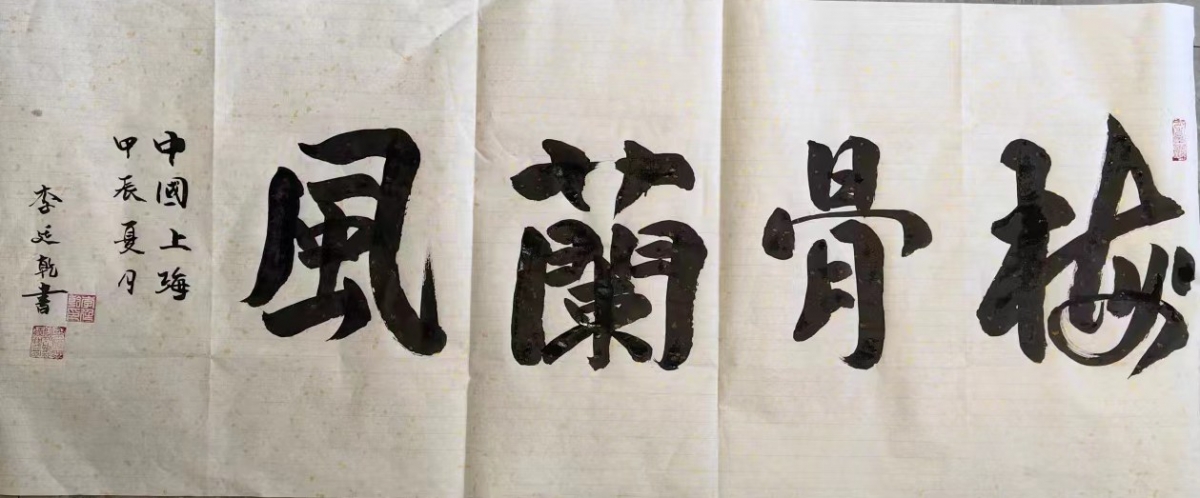 梅骨蘭風
中國上海
甲辰夏月
李延乾書